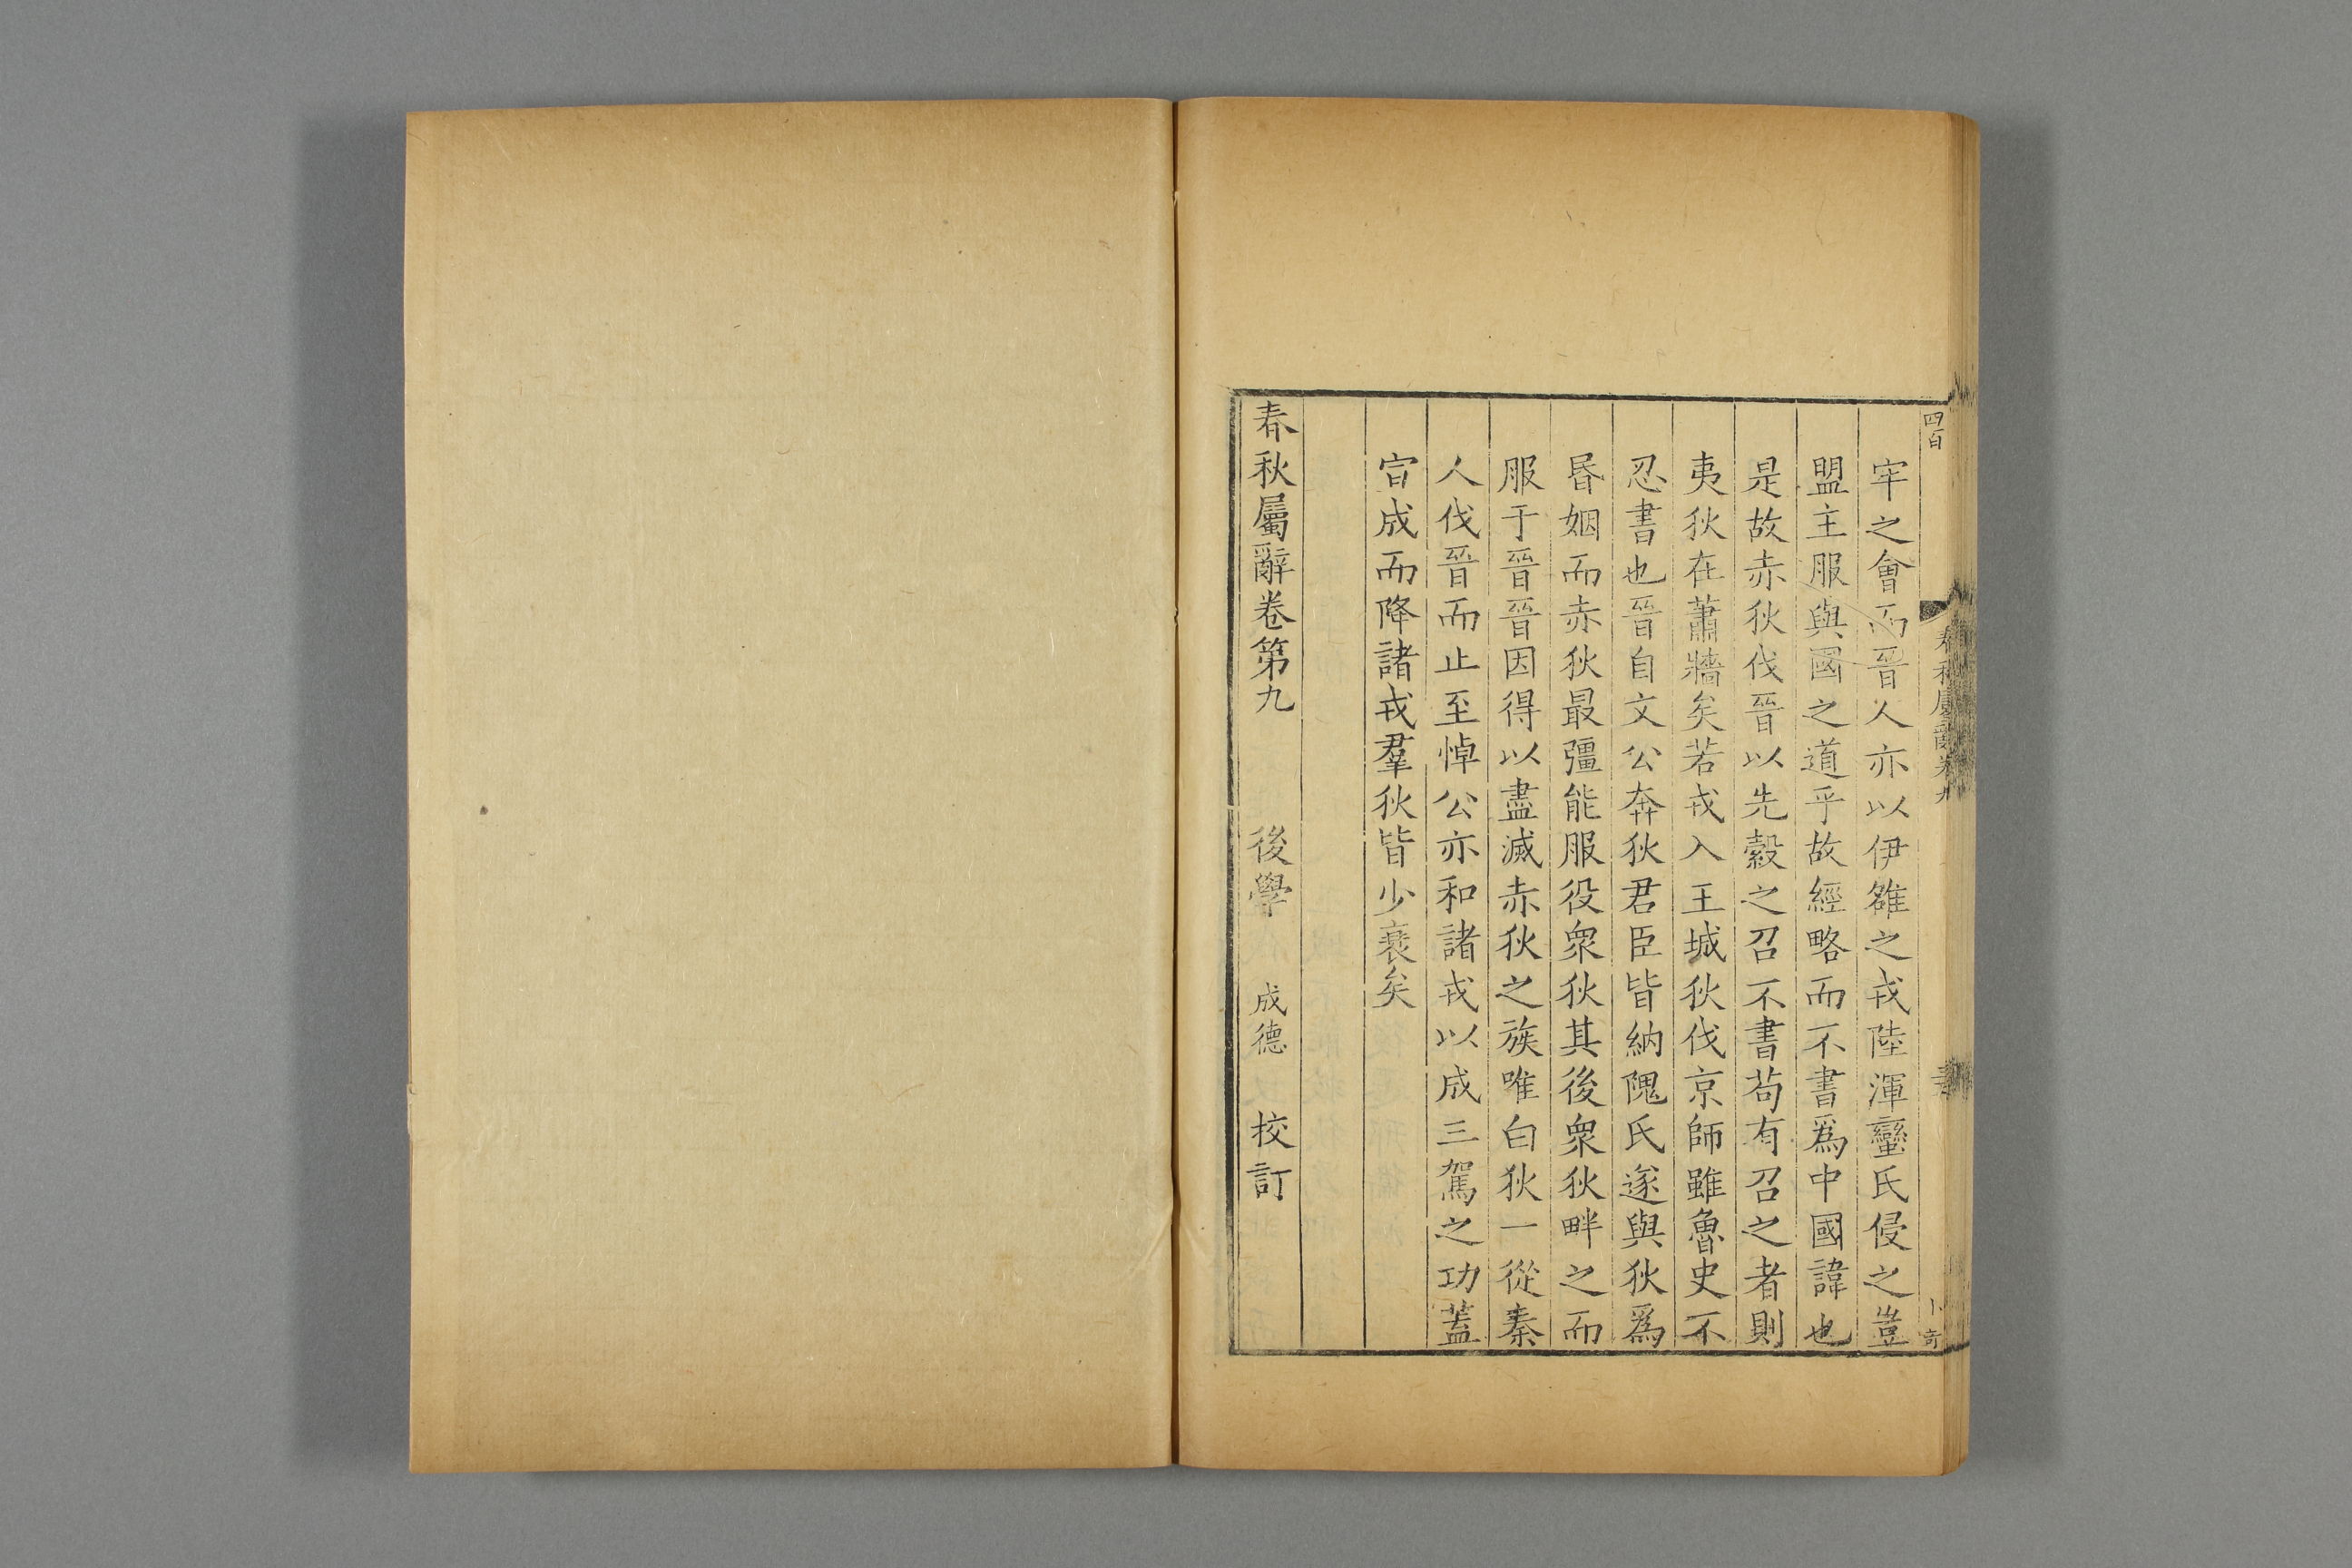 四百
春秋屬辭卷九
牢之會而晉人亦以伊雒之戎陸渾蠻氏侵之豈
盟主服與國之道乎故經略而不書爲中國諱也
是故赤狄伐晉以先縠之召不書苟有召之者則
夷狄在蕭牆矣若戎入王城狄伐京師雖魯史不
忍書也晉自文公奔狄君臣皆納隗氏遂與狄爲
昏姻而赤狄最彊能服役衆狄其後衆狄畔之而
服于晉晉因得以盡滅赤狄之族唯白狄一從秦
人伐晉而止至悼公亦和諸戎以成三駕之功蓋
官成而降諸戎羣狄皆少衰矣
春秋屬辭卷第九 後學 成德 校訂